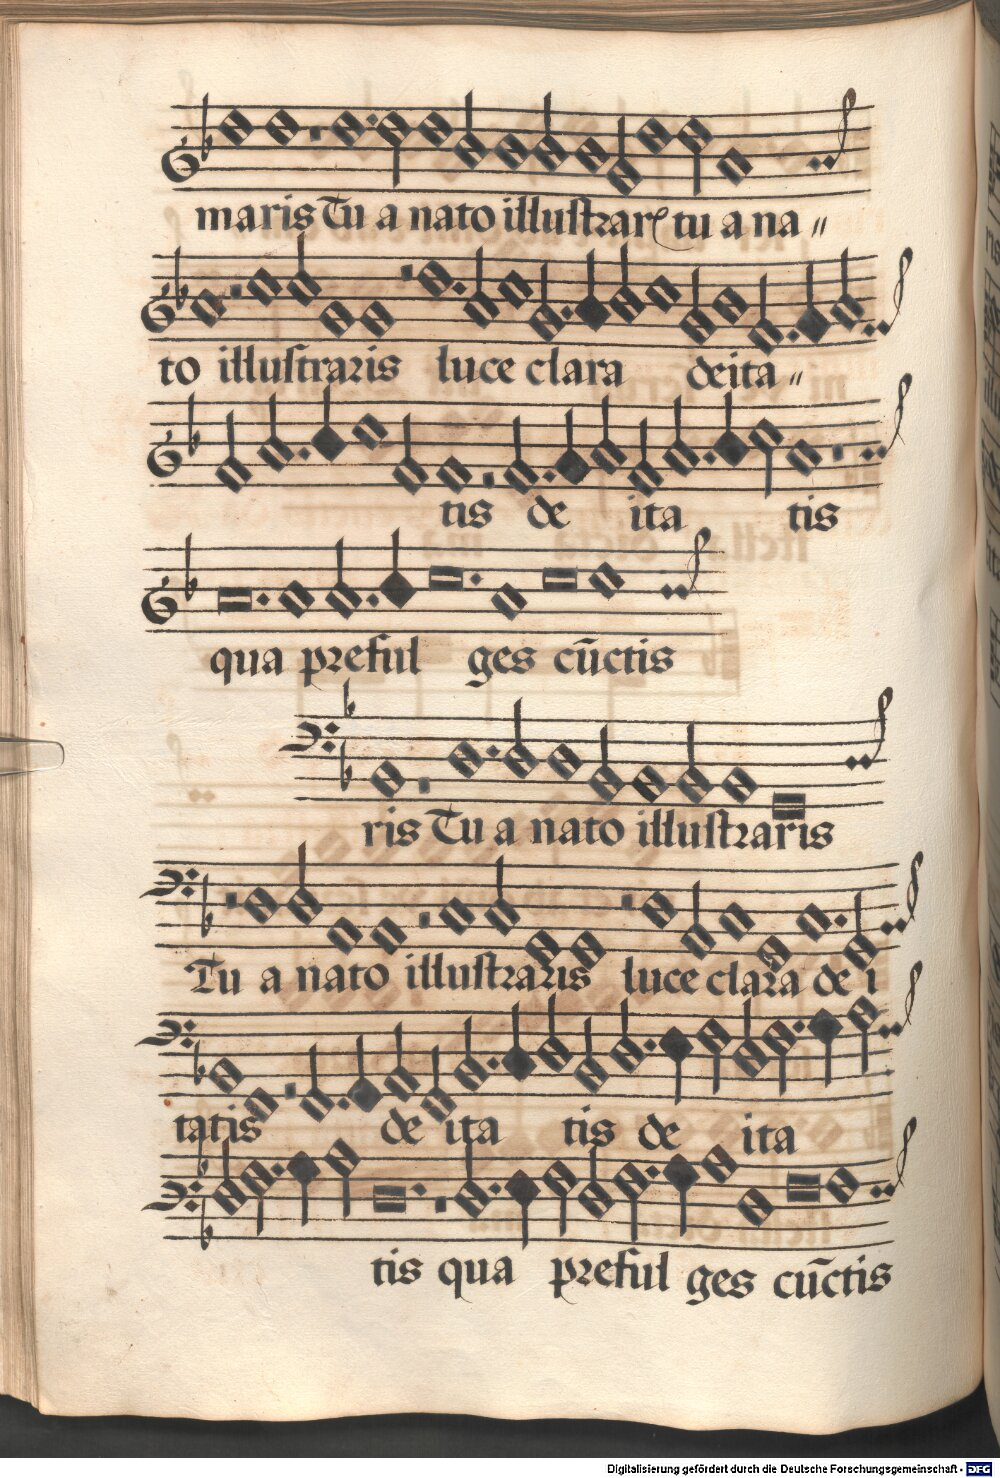 maris Tu a nato illustrarꝭ tu a na〃
to illustraris luce clara deita〃
tis de ita tis
qua preful ges cūctis
ris Tu a nato illustraris
Tu a nato illustraris luce clara de i
tatis de ita tis de ita
tis qua preful ges cūctis
Digitalisierung gefördert durch die Deutsche Forschungsgemeinschaft - DFG